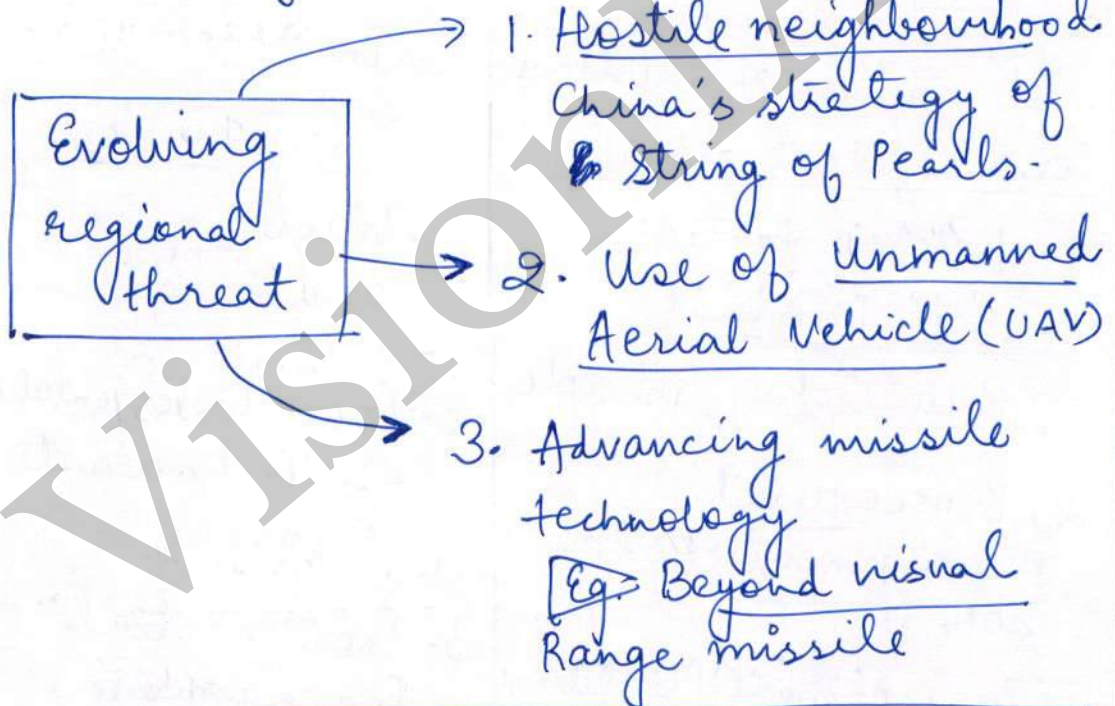 Evolving
regional
threat
1. Hostile neighbourhood
China's strategy of
String of Pearls.
2. Use of Unmanned
Aerial Vehicle (UAV)
3. Advancing missile
technology
Eg. Beyond visual
Range missile
Vision